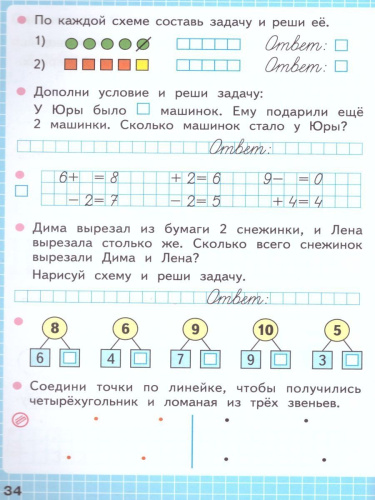 По каждой схеме составь задачу и реши её.
1) Ответ:
2) Ответ:
Дополни условие и реши задачу:
У Юры было машинок. Ему подарили ещё
2 машинки. Сколько машинок стало у Юры?
Ответ:
6+ =8 +2=6 9- =0
-2=7 -2=5 +4=4
Дима вырезал из бумаги 2 снежинки, и Лена
вырезала столько же. Сколько всего снежинок
вырезали Дима и Лена?
Нарисуй схему и реши задачу.
Ответ:
8 6 9 10 5
6 4 7 9 3
Соедини точки по линейке, чтобы получились
четырёхугольник и ломаная из трёх звеньев.
34